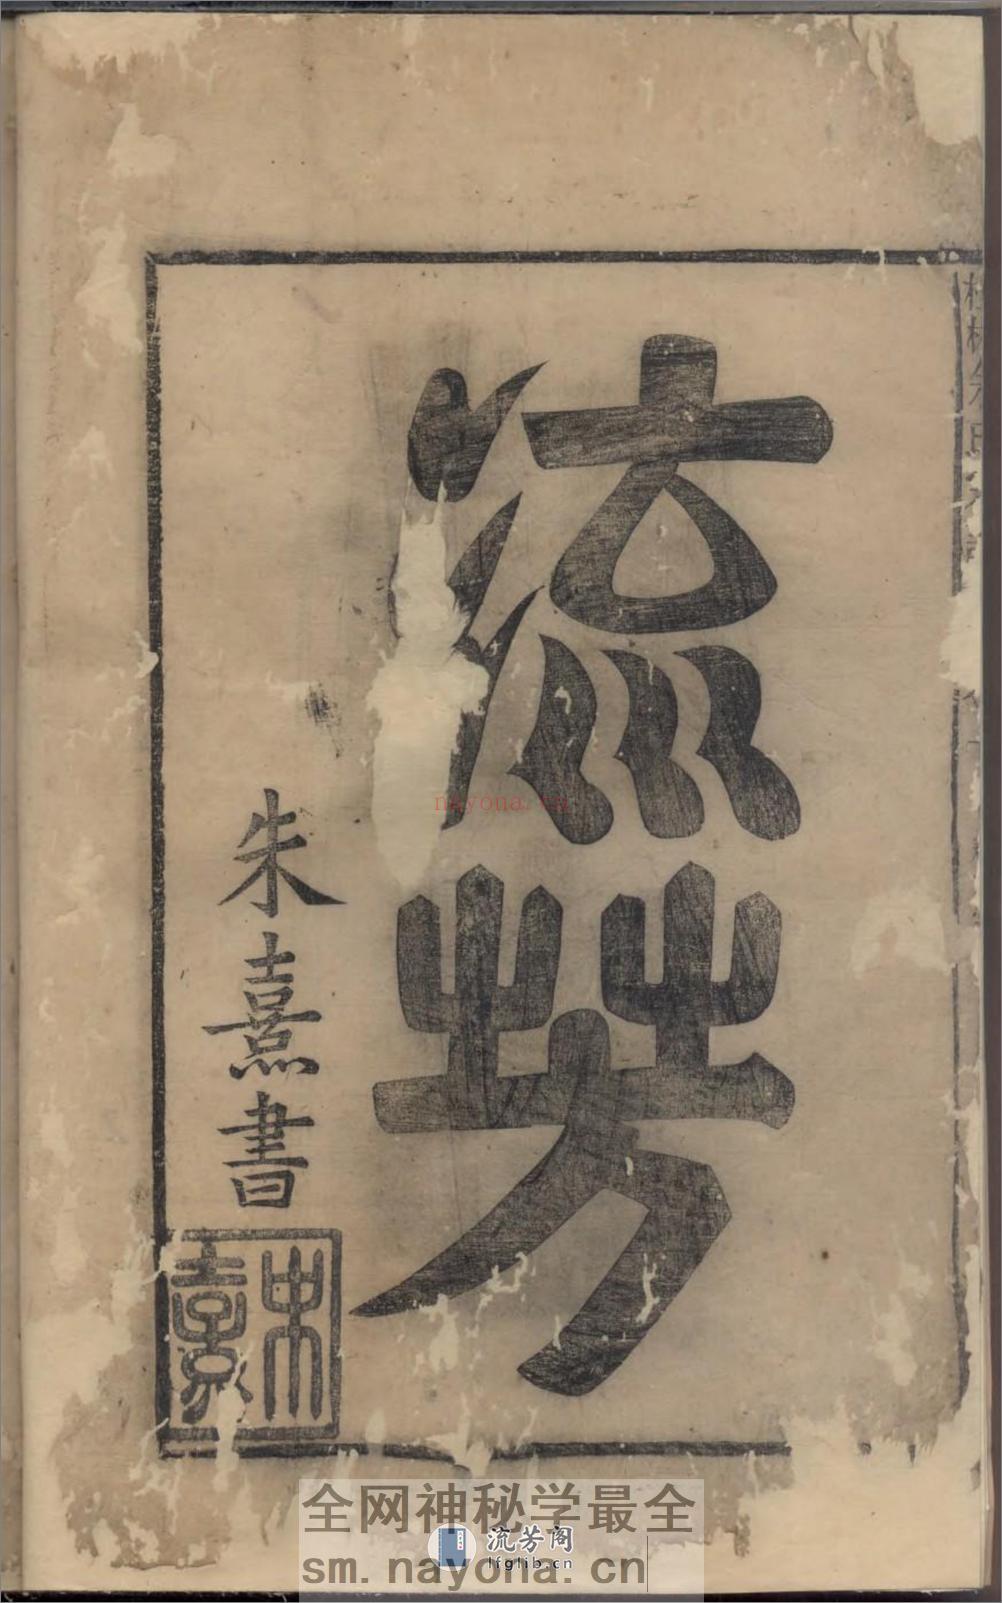 流芳
朱熹書
朱熹
nayona.cn
全网神秘学最全
流芳阁
lfglib.cn
sm.nayona.cn